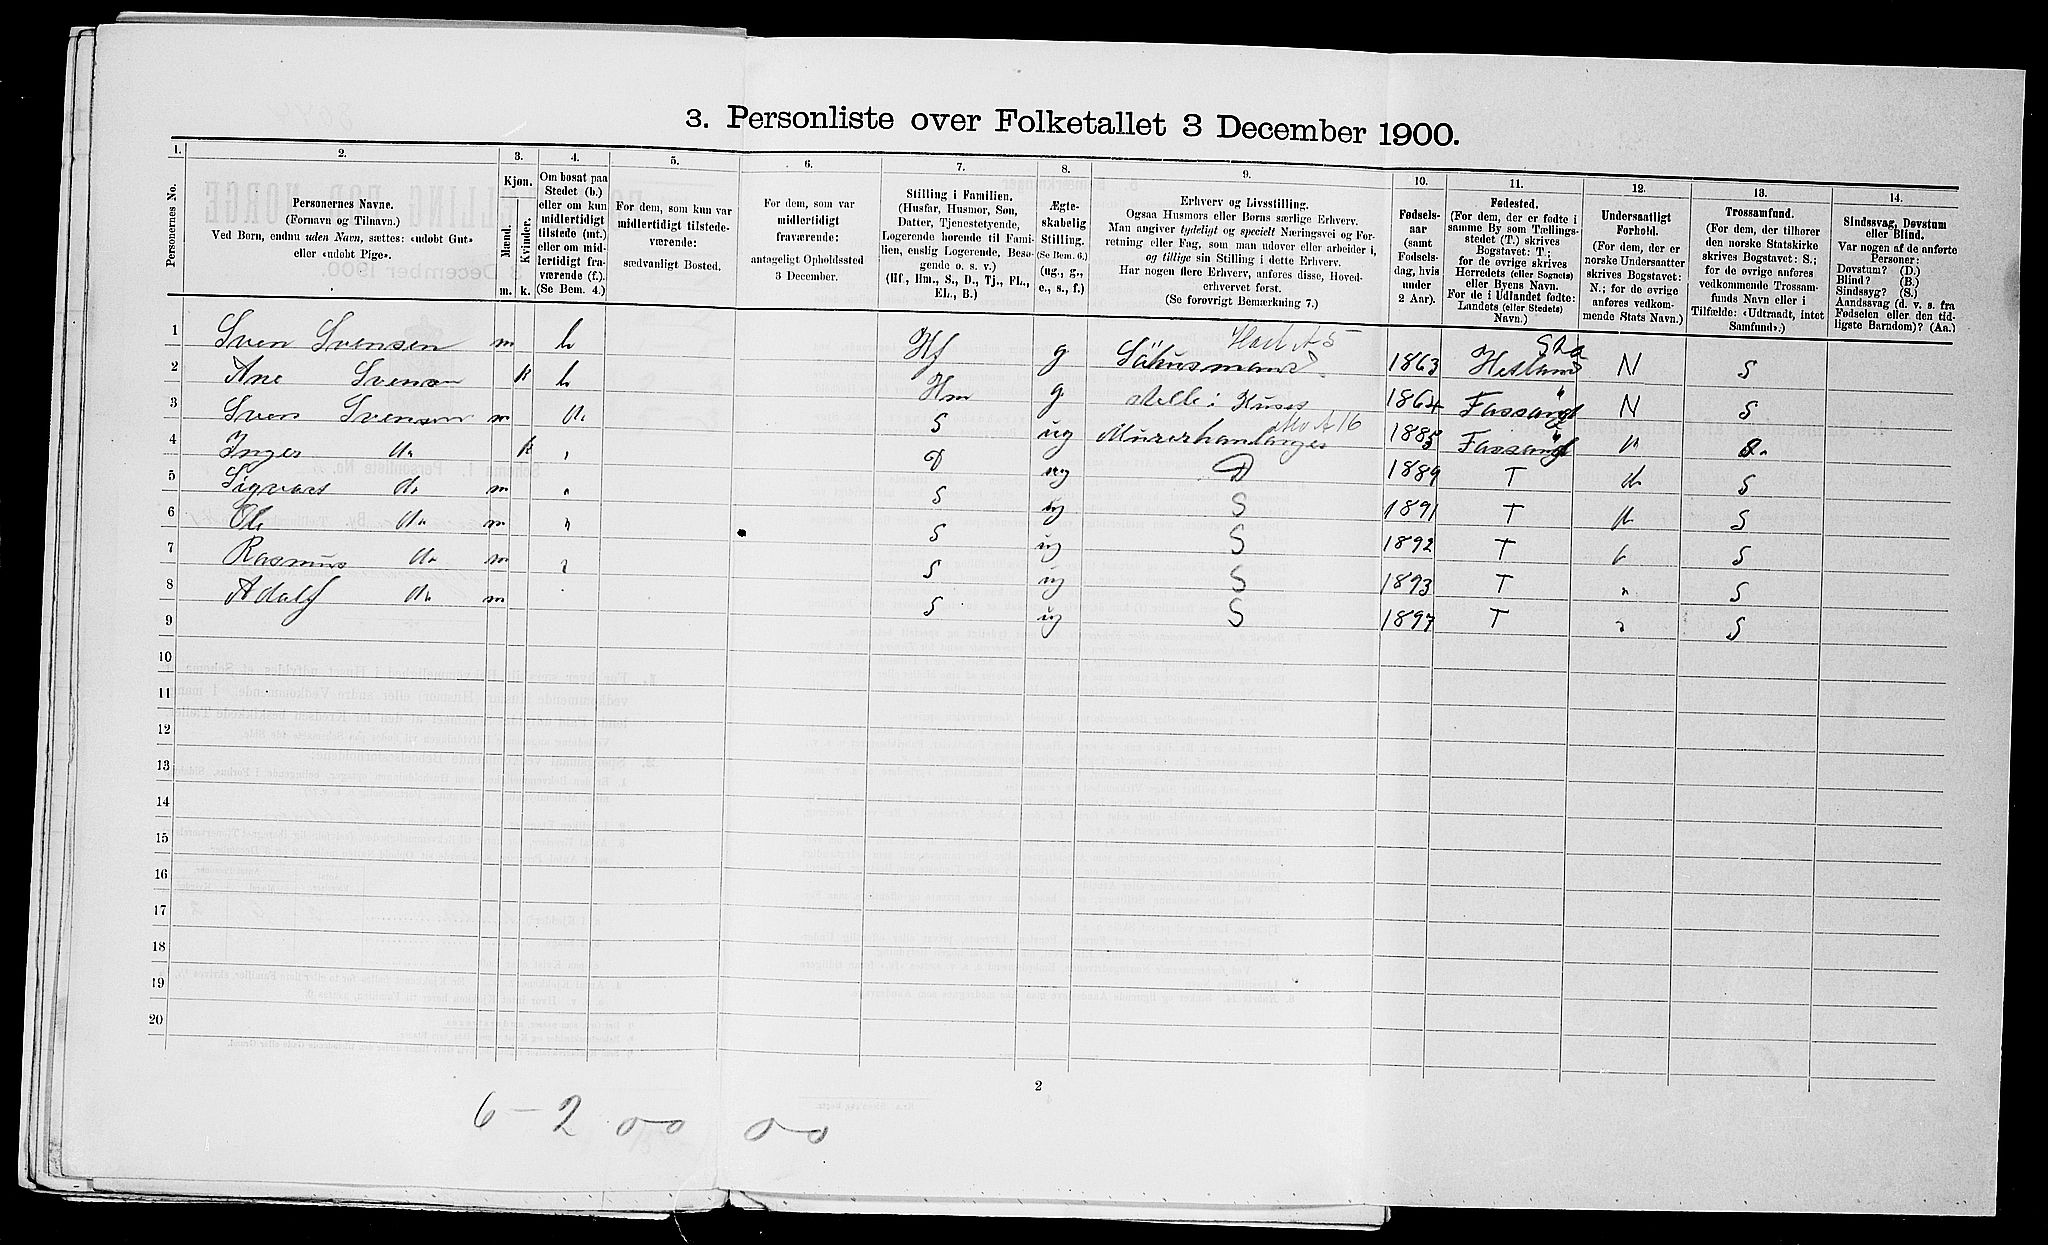 3. Personliste over Folketallet 3 December 1900.
1. 2. 3. 4. 5. 6. 7. 8. 9. 10. 11. 12. 13. 14.
Personernes No.
Personernes Navne.
(Fornavn og Tilnavn.)
Ved Børn, endnu uden Navn, sættes: «udøbt Gut»
eller «udøbt Pige».
Kjøn.
Mænd.
Kvinder.
m. k.
Om bosat paa
Stedet (b.)
eller om kun
midlertidigt
tilstede (mt.)
eller om mid-
lertidigt fra-
værende (f.).
(Se Bem. 4.)
For dem, som kun var
midlertidigt tilstede-
værende:
sædvanligt Bosted.
For dem, som var
midlertidigt
fraværende:
antageligt Opholdssted
3 December.
Stilling i Familien.
(Husfar, Husmor, Søn,
Datter, Tjenestetyende,
Logerende hørende til Fami-
lien, enslig Logerende, Besø-
gende o. s. v.)
(Hf., Hm., S., D., Tj., FL.,
EL., B.)
Ægte-
skabelig
Stilling.
(Se Bem. 6.)
(ug., g.,
e., s., f.)
Erhverv og Livsstilling.
Ogsaa Husmors eller Børns særlige Erhverv.
Man angiver tydeligt og specielt Næringsvei og For-
retning eller Fag, som man udover eller arbeider i,
og tillige sin Stilling i dette Erhverv.
Har nogen flere Erhverv, anføres disse, Hoved-
erhvervet først.
(Se forøvrigt Bemærkning 7.)
Fødsels-
aar
(samt
Fødsels-
dag, hvis
under
2 Aar).
Fødested.
(For dem, der er fødte i
samme By som Tællings-
stedet (T.) skrives
Bogstavet: T.;
for de øvrige skrives
Herredets (eller Sognets)
eller Byens Navn.
For de i Udlandet fødte:
Landets (eller Stedets)
Navn.)
Undersaatligt
Forhold.
(For dem, der er
norske Undersaatter
skrives Bogstavet:
N.; for de øvrige
anføres vedkom-
mende Stats Navn.)
Trossamfund.
(For dem, der tilhører
den norske Statskirke
skrives Bogstavet: S.;
for de øvrige anføres
vedkommende Trossam-
funds Navn eller i
Tilfælde: «Udtraadt, intet
Samfund».)
Sindssvag, Døvstum
eller Blind.
Var nogen af de anførte
Personer:
Døvstum? (D.)
Blind? (B.)
Sindssyg? (S.)
Aandssvag (d. v. s. fra
Fødselen eller den tid-
ligste Barndom)? (Aa.)
1 Sven Svensen m b Hf g 1863 Hetland N S
2 Ane Svensen k b Hm g Stelle i Huset 1864 N S
3 Sven Svensen m do S ug Murerhandlanger 1885
4 Inger do k D ug D 1889 T do S
5 Sigvart do m " S ug S 1891 T do S
6 Ole do m " S ug S 1892 T S
7 Rasmus do m S ug S 1893 T " S
8 Adolf do m S ug S 1897 T S
9
10
11
12
13
14
15
16
17
18
19
20
2
6 – 2